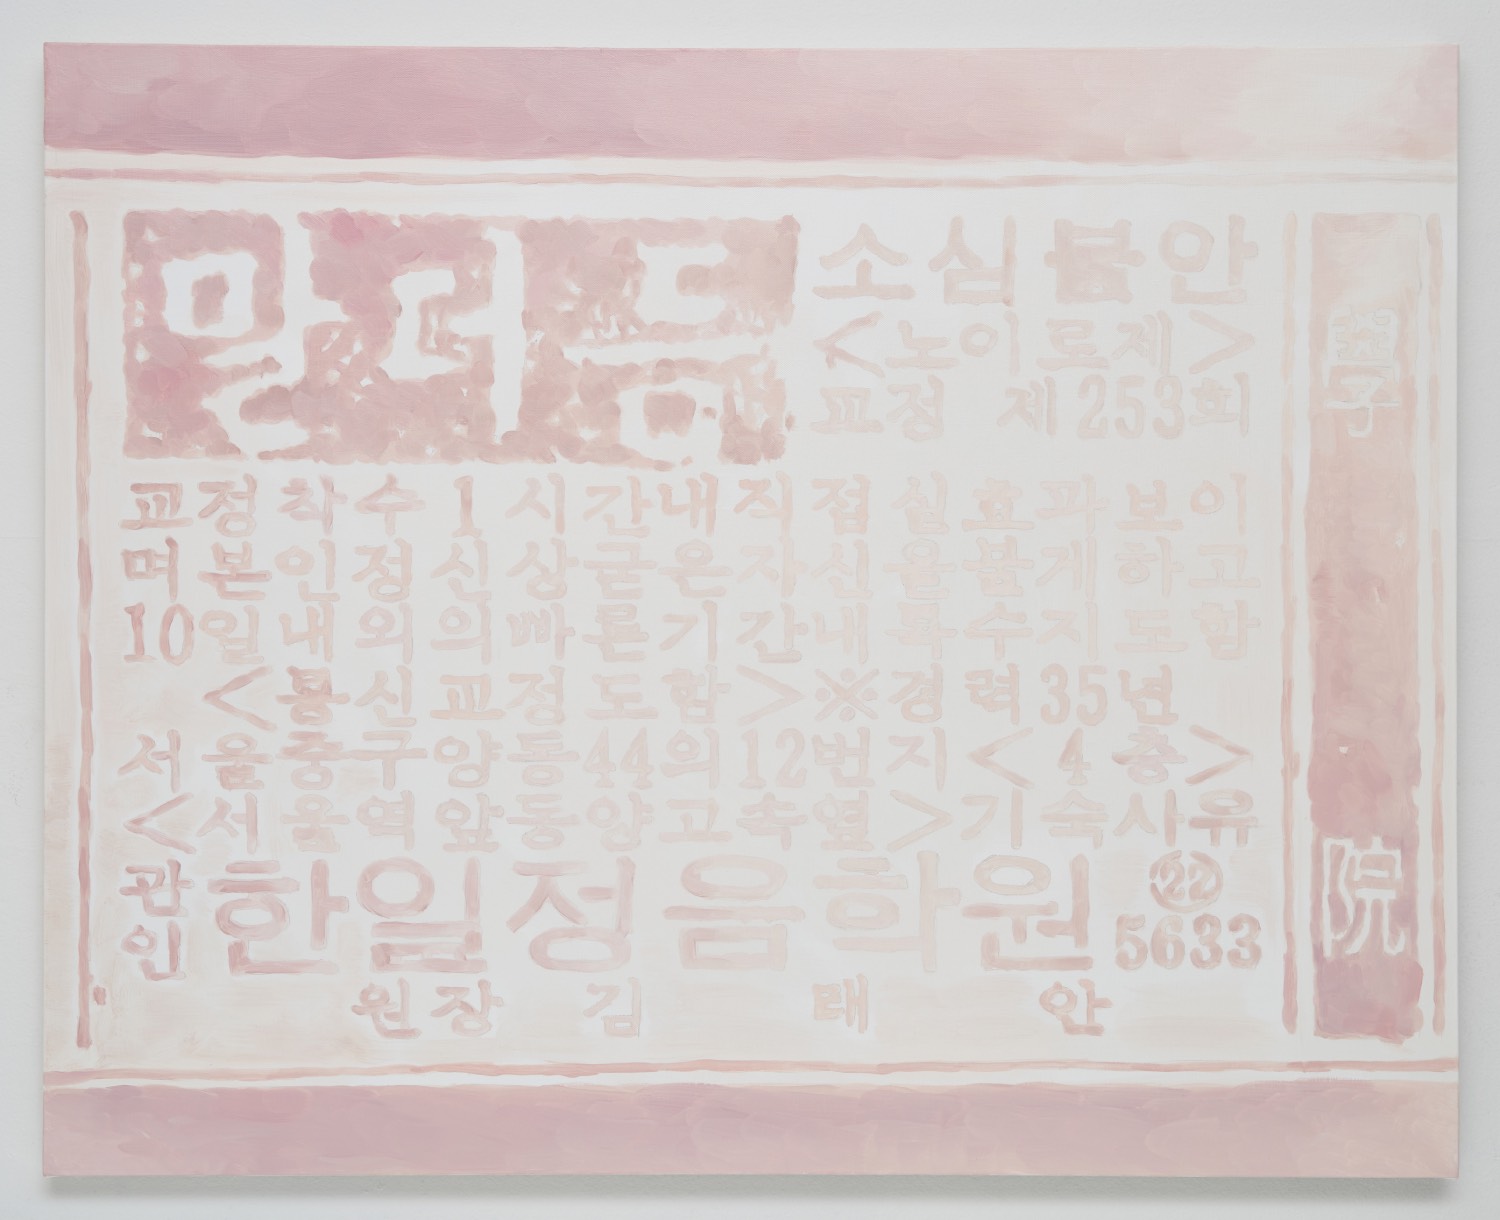 말더듬
소심불안
<노이로제>
교정 제253회
교정착수1시간내직접실효과보이
며본인정신상굳은자신을불게하고
10일내외의빠른기간내특수지도함
<통신교정도함>※경력35년
서울중구양동44의12번지<4층>
<서울역앞동양고속옆>기숙사유
관인 한일정음학원 ㉒5633
원장 김 태 안
學院